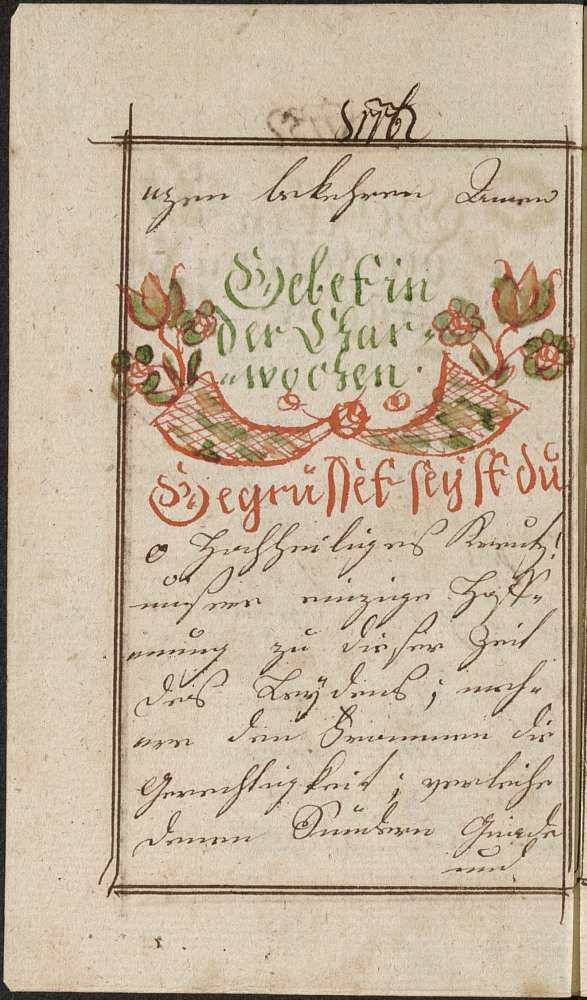 1762
bekehren Amen
Gebet in
der Char-
wochen.
Gegrüsset seyst du
o Hochheiliges Kreutz!
unsere einzige Hoff-
nung zu dieser Zeit
des Leydens; meh-
re den Frommen die
Gerechtigkeit; verleihe
denen Sündern Gnade
und